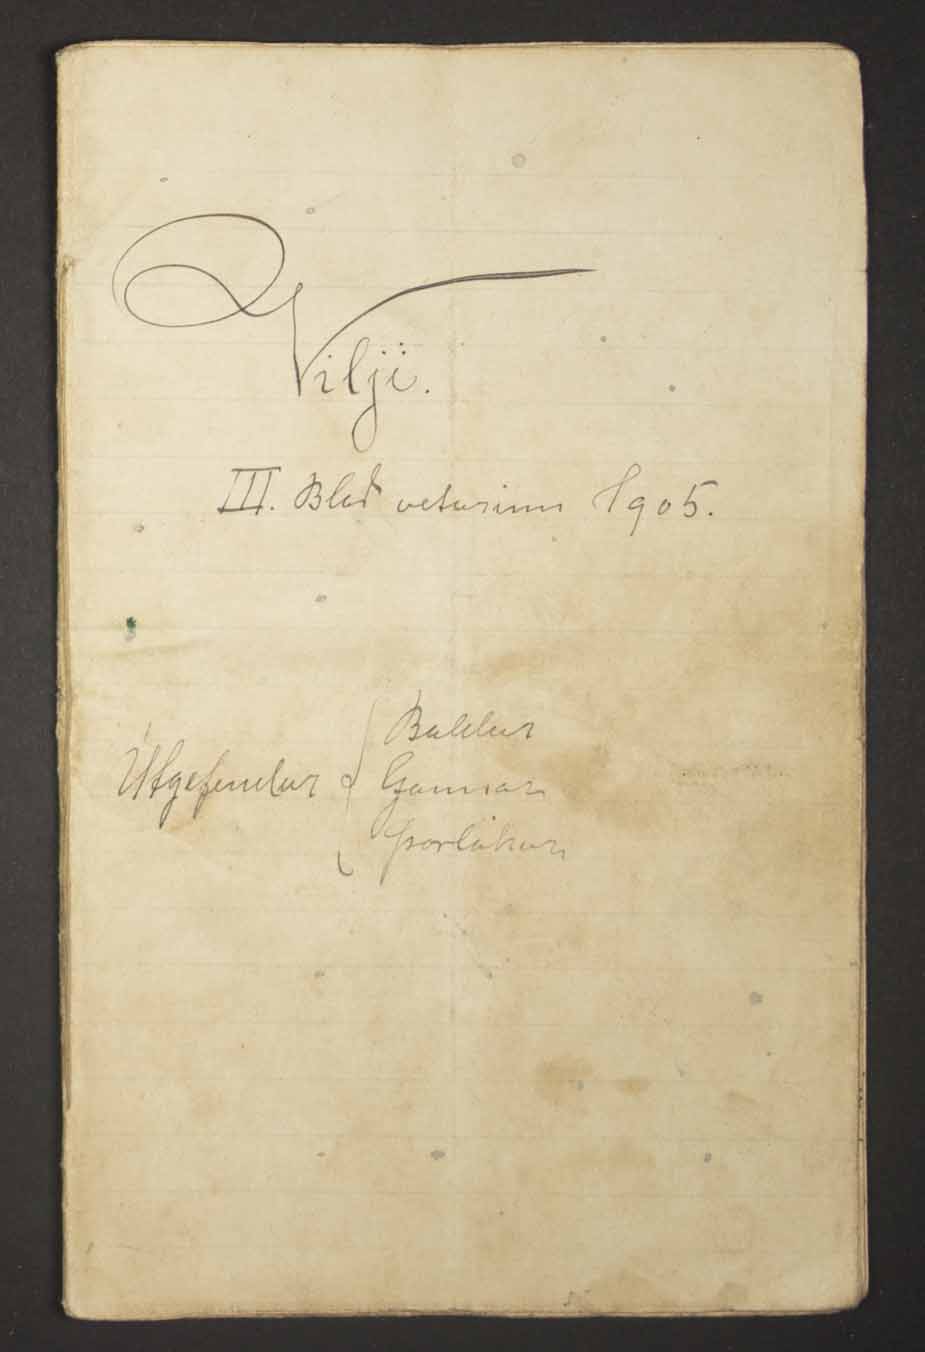 Vilji.
III. Blað veturinn 1905.
Útgefendur { Baldur
Gunnar
Þorlákur